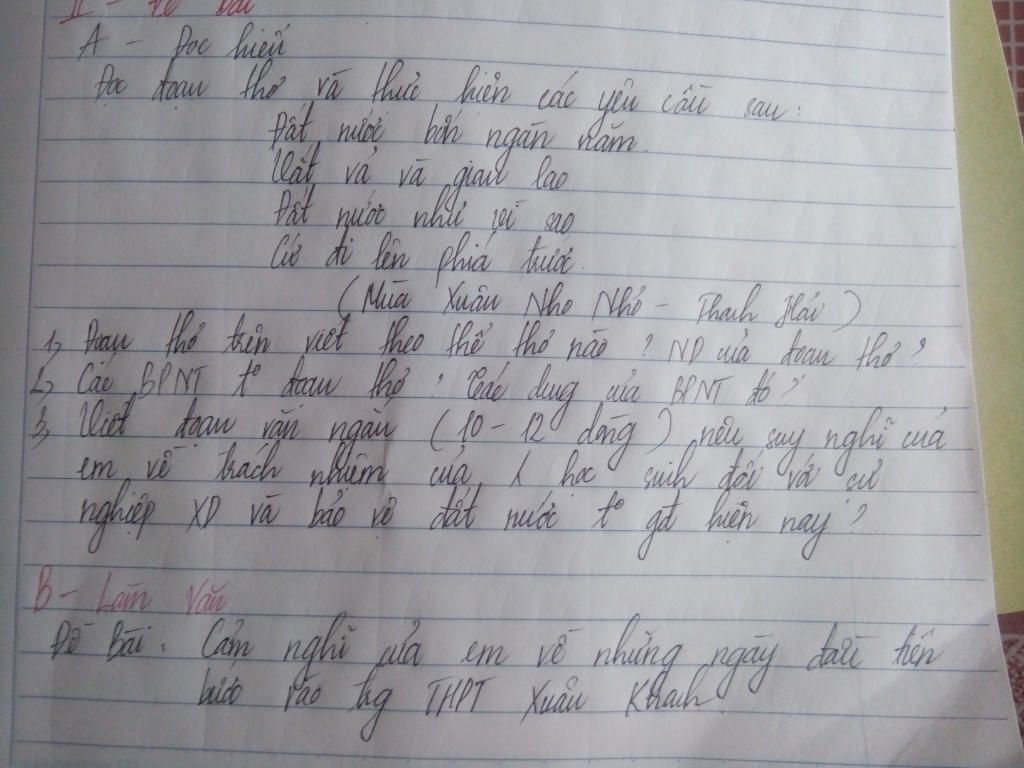 II - Đề bài
A - Đọc hiểu
Đọc đoạn thơ và thực hiện các yêu cầu sau:
Đất nước bốn ngàn năm
Vất vả và gian lao
Đất nước như vì sao
Cứ đi lên phía trước.
(Mùa Xuân Nho Nhỏ - Thanh Hải)
1, Đoạn thơ trên viết theo thể thơ nào? ND của đoạn thơ?
2, Các BPNT to đoạn thơ? Tác dụng của BPNT đó?
3, Viết đoạn văn ngắn (10-12 dòng) nêu suy nghĩ của
em về trách nhiệm của 1 học sinh đối với sự
nghiệp XD và bảo vệ đất nước to gđ hiện nay?
B - Làm Văn
Đề Bài: Cảm nghĩ của em về những ngày đầu tiên
bước vào trg THPT Xuân Khanh.